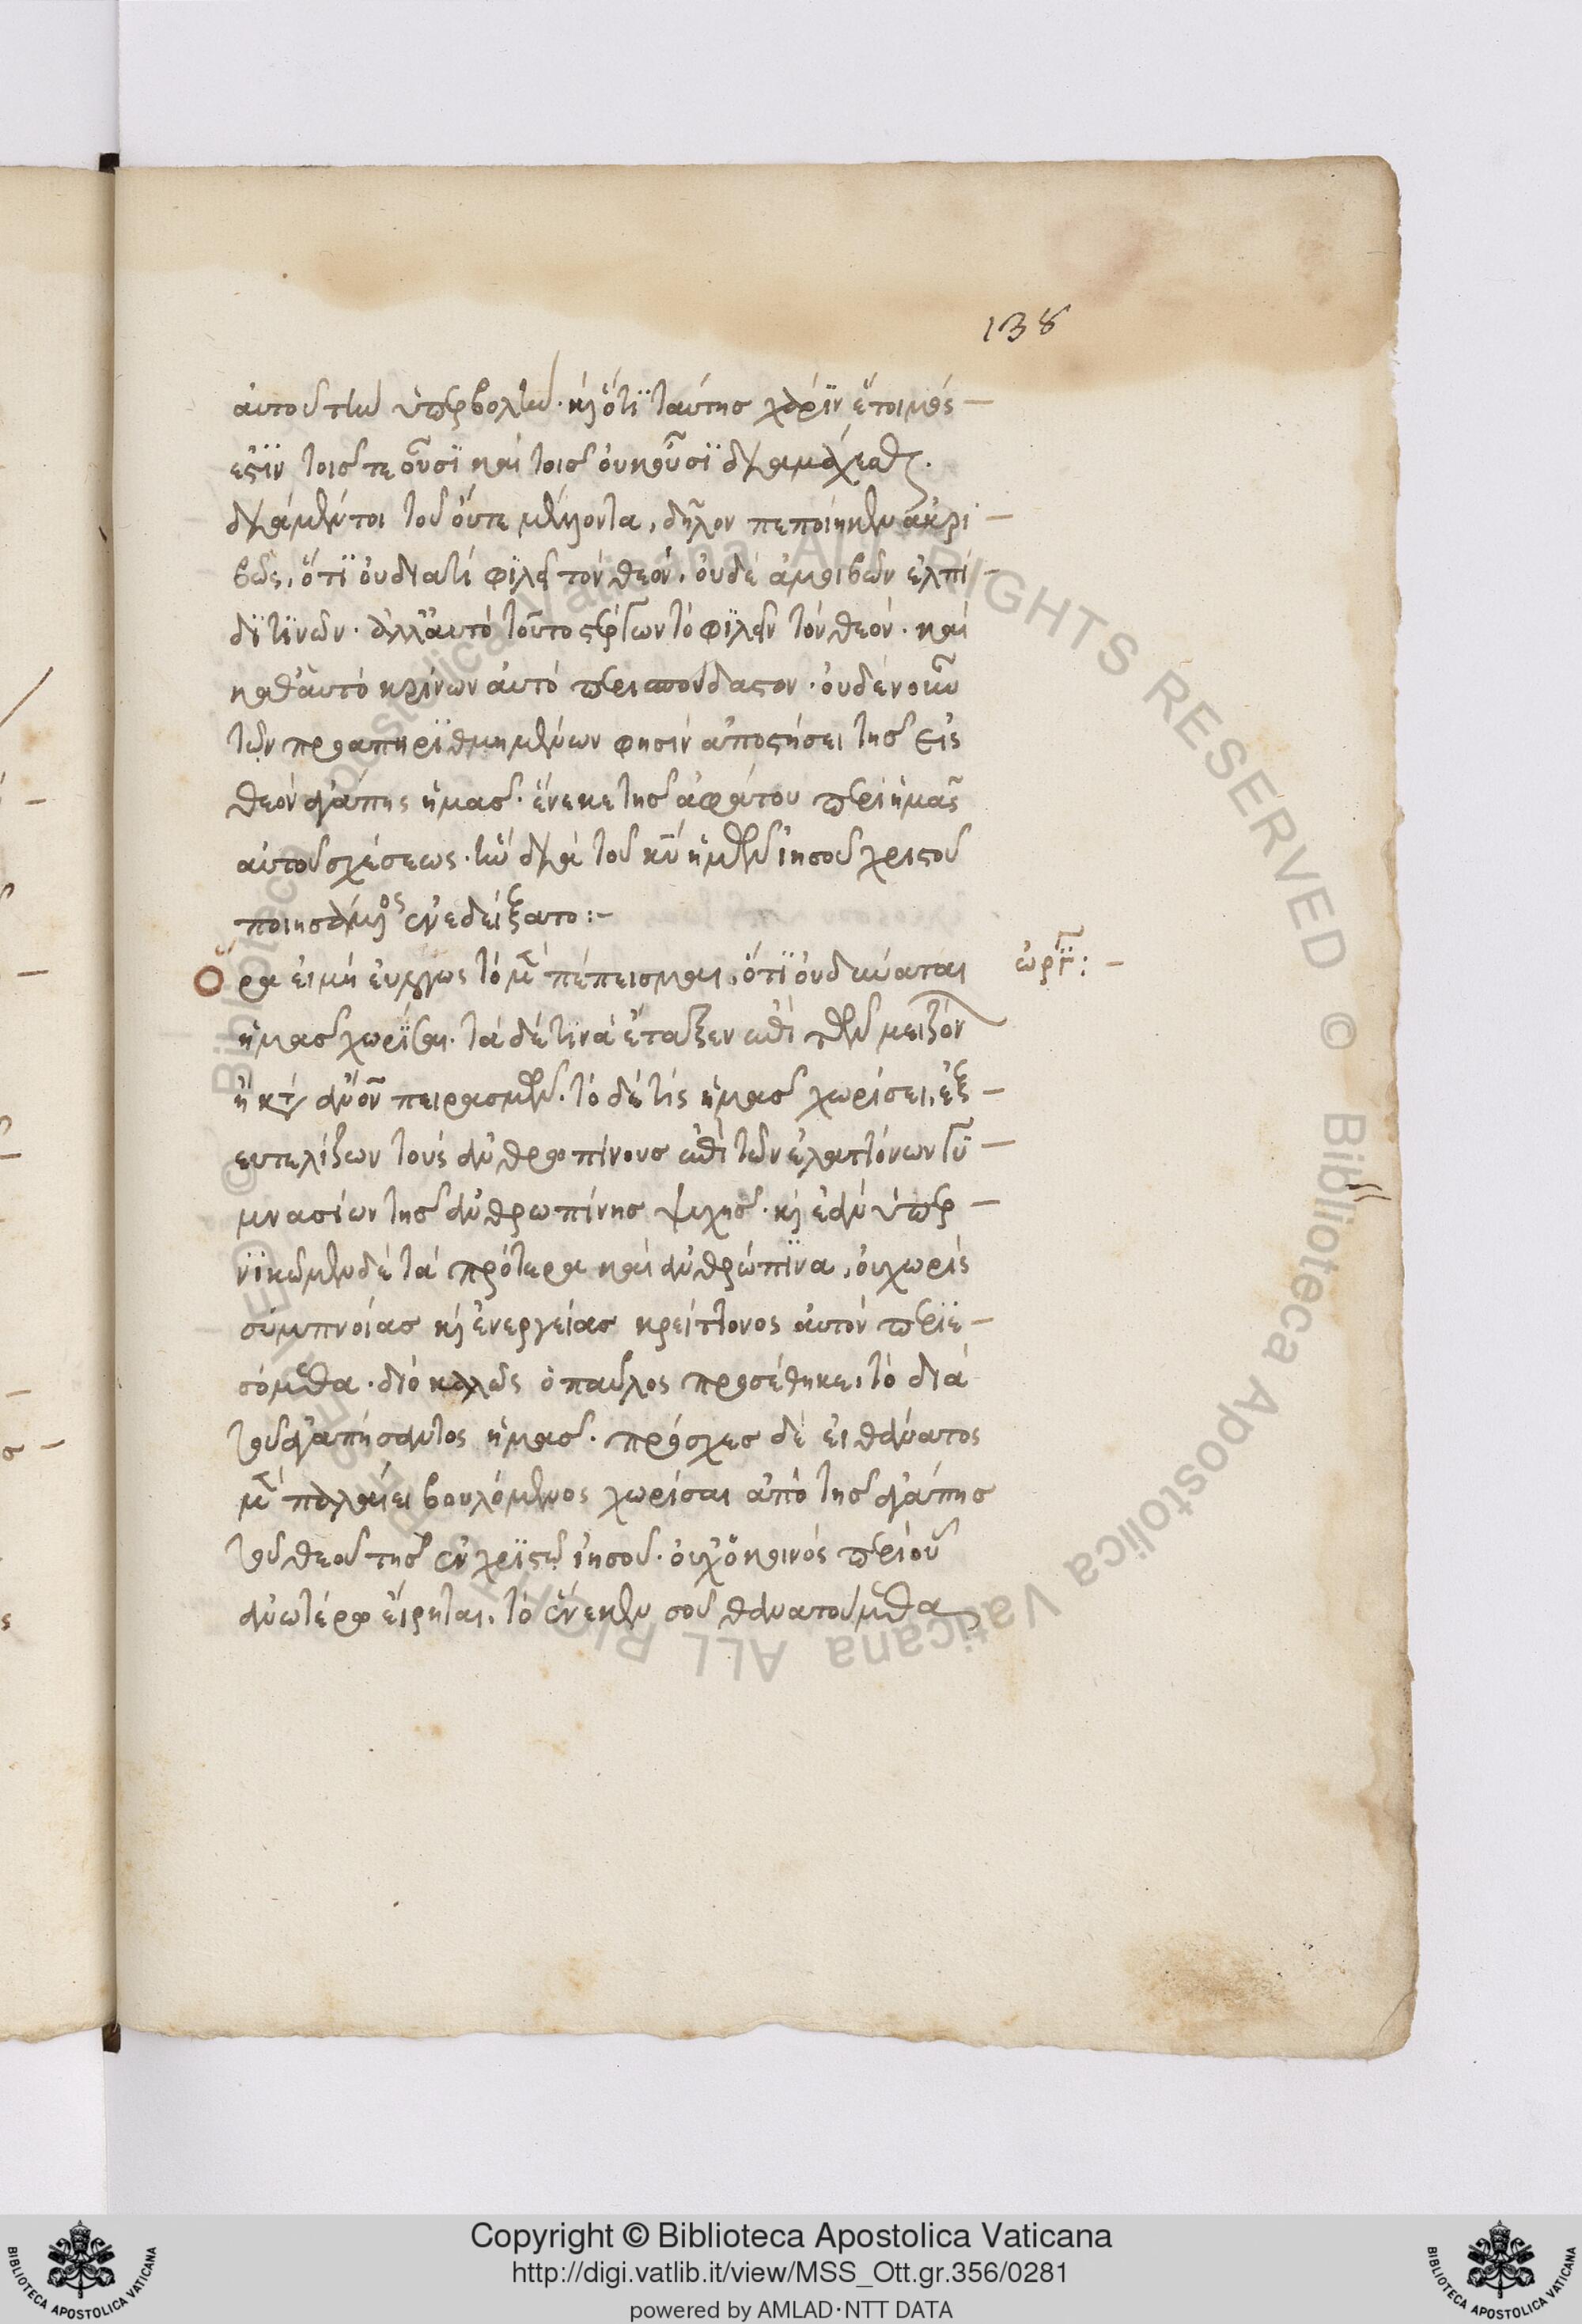 138
αὐτοῦ τὴν ὑπερβολὴν· καὶ ὅτϊ ταύτης χάρϊν ἕτοιμός
ἐστϊν τοῖς τε οὖσϊ καὶ τοῖς οὐκ οὖσϊ διαμάχεσθαι.
διὰ μέντοι τοῦ οὔτε μέλλοντα, δῆλον πεποίηκεν ἀκρι
βῶς, ὅτϊ οὐ διά τι φϊλεῖ τὸν θεόν, οὐδὲ ἀμοιβῶν ἐλπί
δϊ τϊνῶν· ἀλλ' αὐτὸ τοῦτο στέργων τὸ φϊλεῖν τὸν θεόν· καὶ
καθ' αὑτὸ κρίνων αὐτὸ περισπούδαστον· οὐδὲν οὖν
τῶν προαπηρϊθμημένων φησὶν ἀποστήσει τῆς εἰς
θεὸν ἀγάπης ἡμᾶς· ἕνεκε τῆς ἀφάτου περὶ ἡμᾶς
αὐτοῦ σχέσεως· ἣν διὰ τοῦ κυ ἡμῶν ἰησοῦ χριστοῦ
ποιησάμενος ἐνεδείξατο:-
Ὅρα εἰ μὴ εὐλόγως τὸ μὲν πέπεισμαι, ὅτϊ οὐ δύναται
ὠρϊγ:-
ἡμᾶς χωρίσαι· τὰ δέ τϊνα ἔταξεν ἐπὶ τῶν μειζόν
ἢ κατὰ ἄνον πειρασμῶν· τὸ δὲ τίς ἡμᾶς χωρίσει, ἐξ
ευτελίζων τοὺς ἀνθροπίνους ἐπὶ τῶν ἐλαττόνων γυ
μνασίων τῆς ἀνθρωπίνης ψυχῆς· καὶ ἐὰν ὑπερ
νϊκῶμεν δὲ τὰ πρότερα καὶ ἀνθρώπϊνα, οὐ χωρὶς
συμπνοίας καὶ ἐνεργείας κρείττονος αὐτὸν περϊε
σόμεθα· διὸ καλῶς ὁ παῦλος προσέθηκε, τὸ διὰ
τοῦ ἀγαπήσαντος ἡμᾶς· πρόσχες δὲ εἰ θάνατος
μὲν παλαίει βουλόμενος χωρίσαι ἀπὸ τῆς ἀγάπης
τοῦ θεοῦ τῆς ἐν χρϊστῷ ἰησοῦ· οὐχ ὁ κοινὸς περὶ οὗ
ἀνωτέρω εἴρηται, τὸ ἕνεκεν σοῦ θανατούμεθα
Copyright © Biblioteca Apostolica Vaticana
http://digi.vatlib.it/view/MSS_Ott.gr.356/0281
powered by AMLAD·NTT DATA